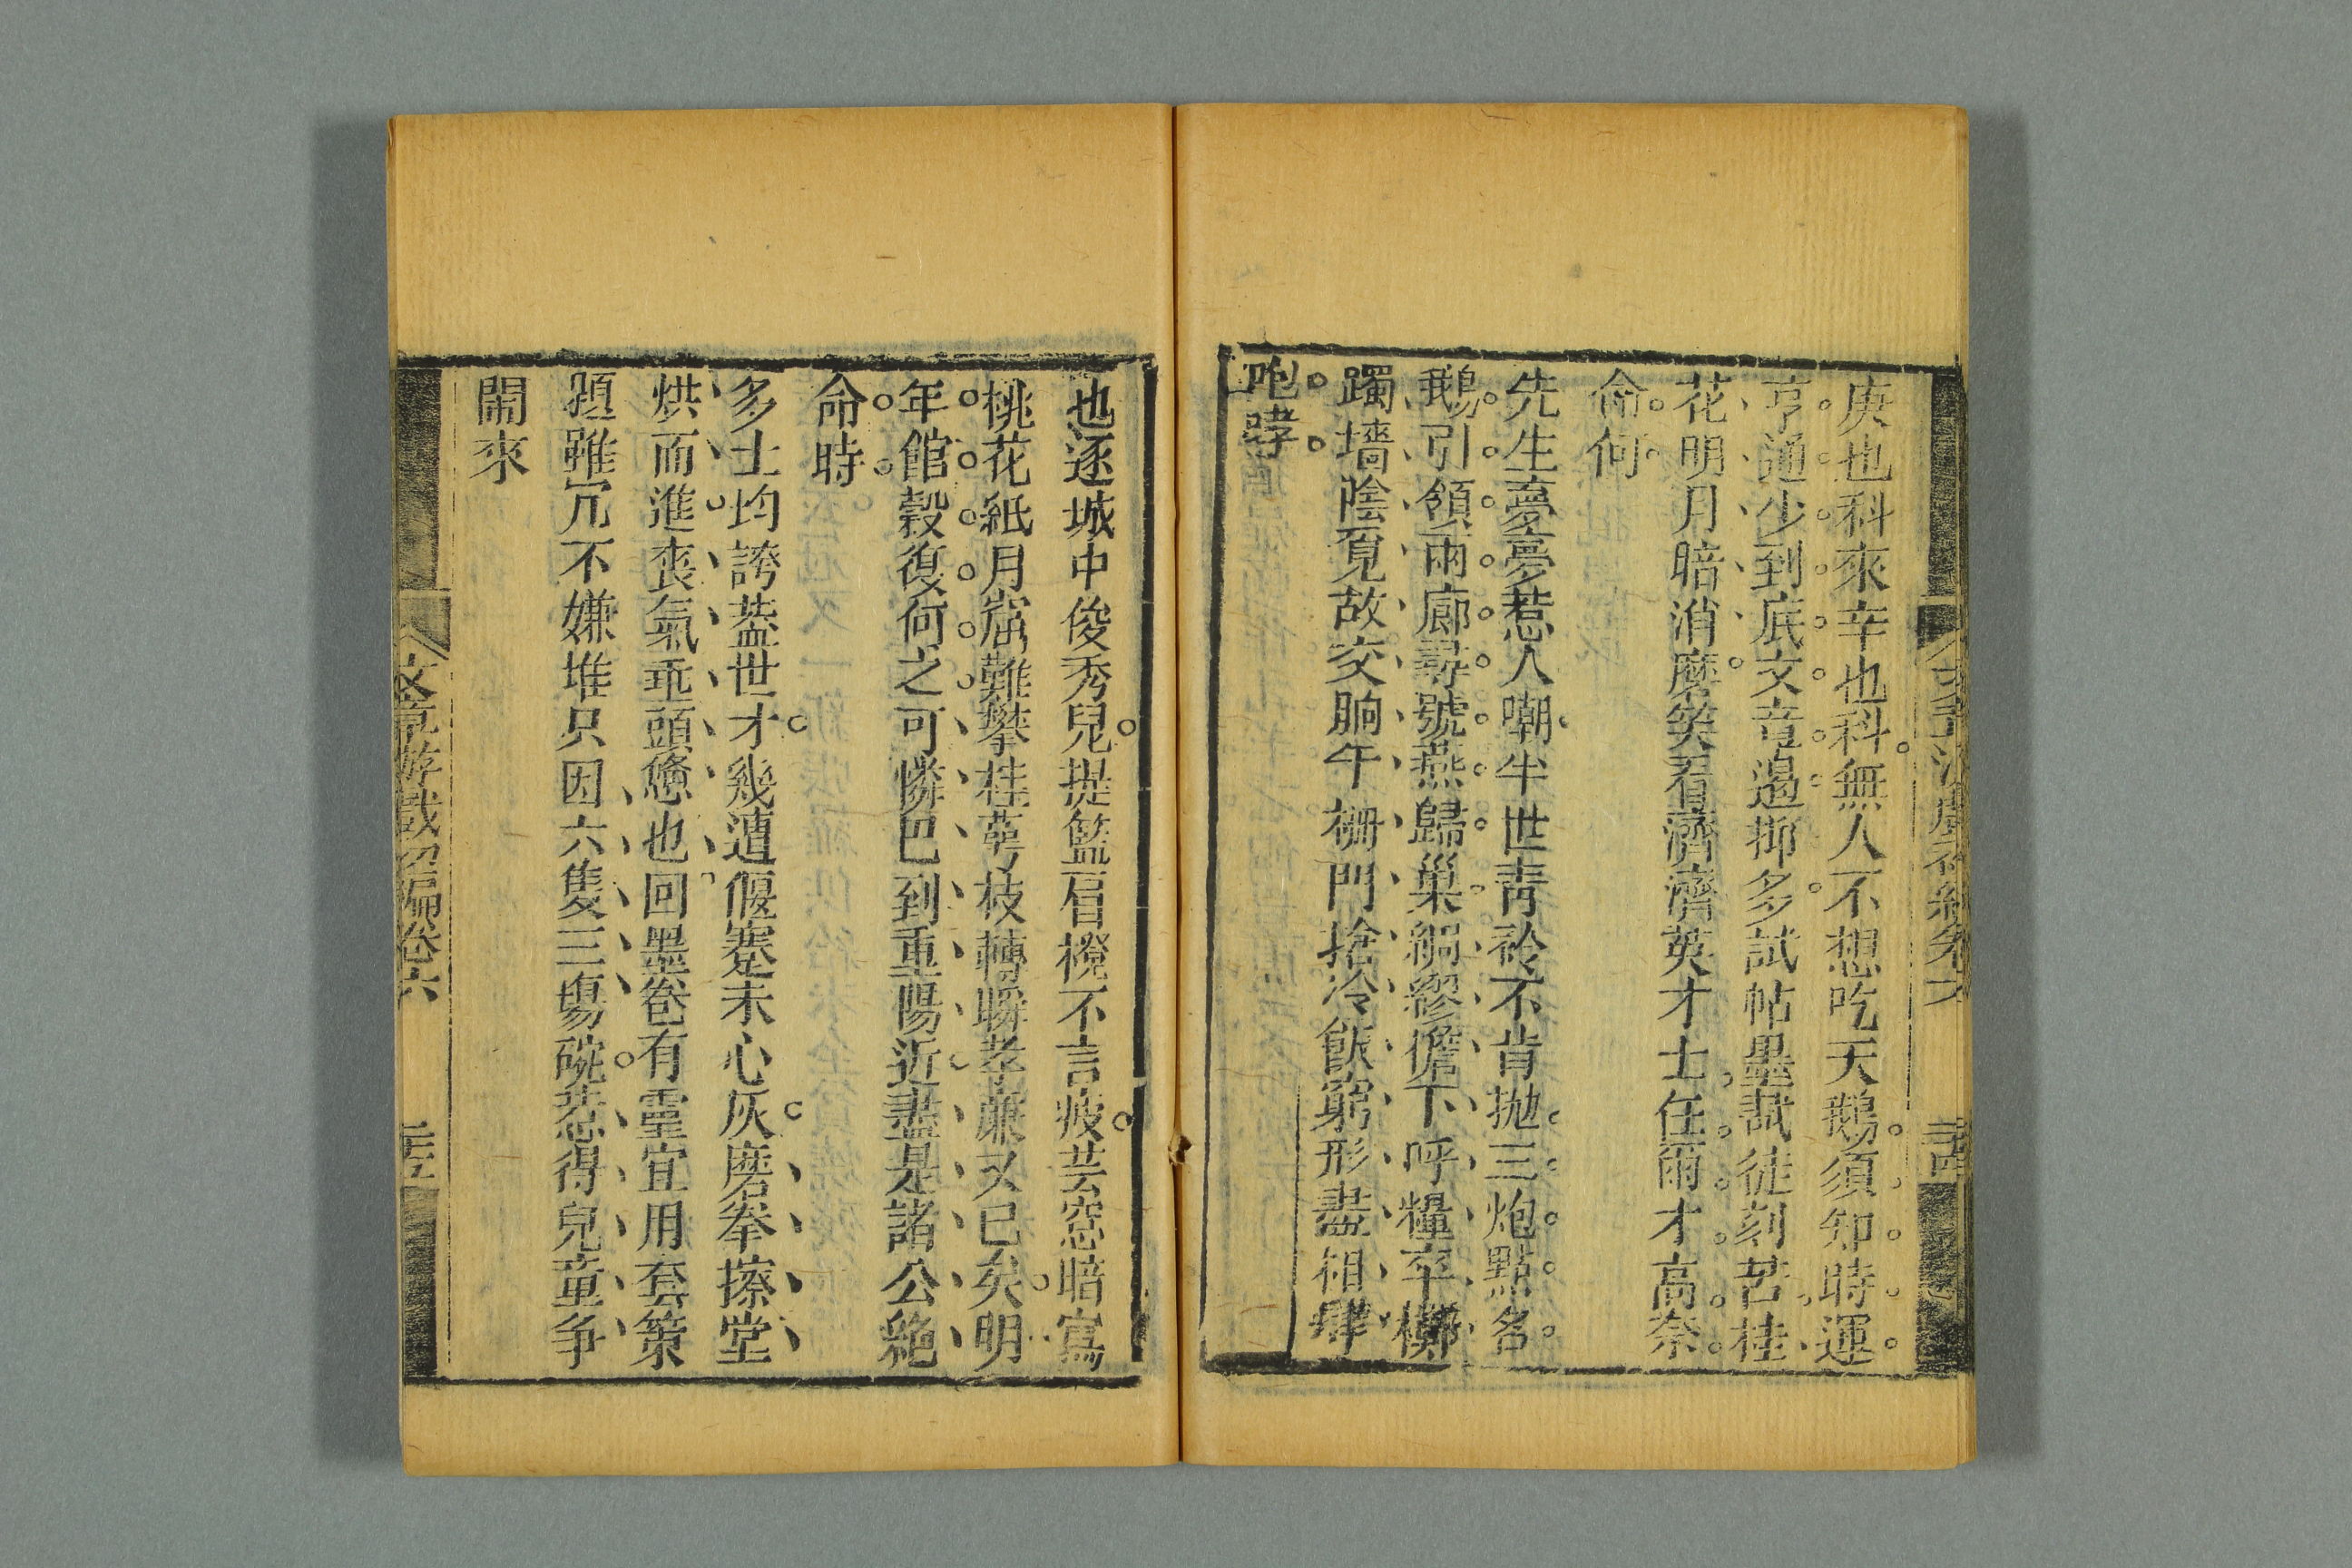 庚也科來辛也科無人不想吃天鵝須知時運
亨通少到底文章遏抑多試帖墨裁徒刻苦桂
花明月暗消磨笑看濟濟英才士任爾才高奈
命何
先生憂夢惹人嘲半世靑衿不肯抛三炮點名
鵝引領兩廊尋號燕歸巢綢繆儋下呼糧卒櫛
躅墻陰覓故交晌午栅門搶冷飯窮形盡相肆
咆哮
也逐城中俊秀兒提籃眉櫈不言疲芸窓暗寫
桃花紙月窟難攀桂萼枝轉瞬孝廉又已矣明
年館穀復何之可憐巴到重陽近盡是諸公絶
命時
多士均誇葢世才幾遭偃蹇未心灰磨拳擦堂
烘而進丧氣垂頭憊也回墨卷有靈宜用套策
題雖冗不嫌堆只因六隻三塲碗惹得兒童争
鬧來
文章游戲四編卷六
三十五